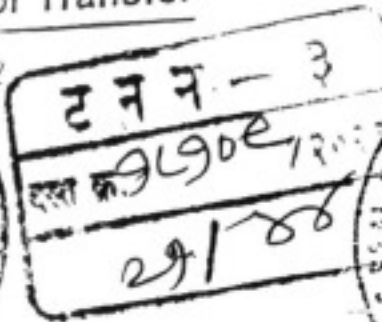 or Transfer
ट न न - ३
दस्त क्र. १८१०९ /२०
२१/४४